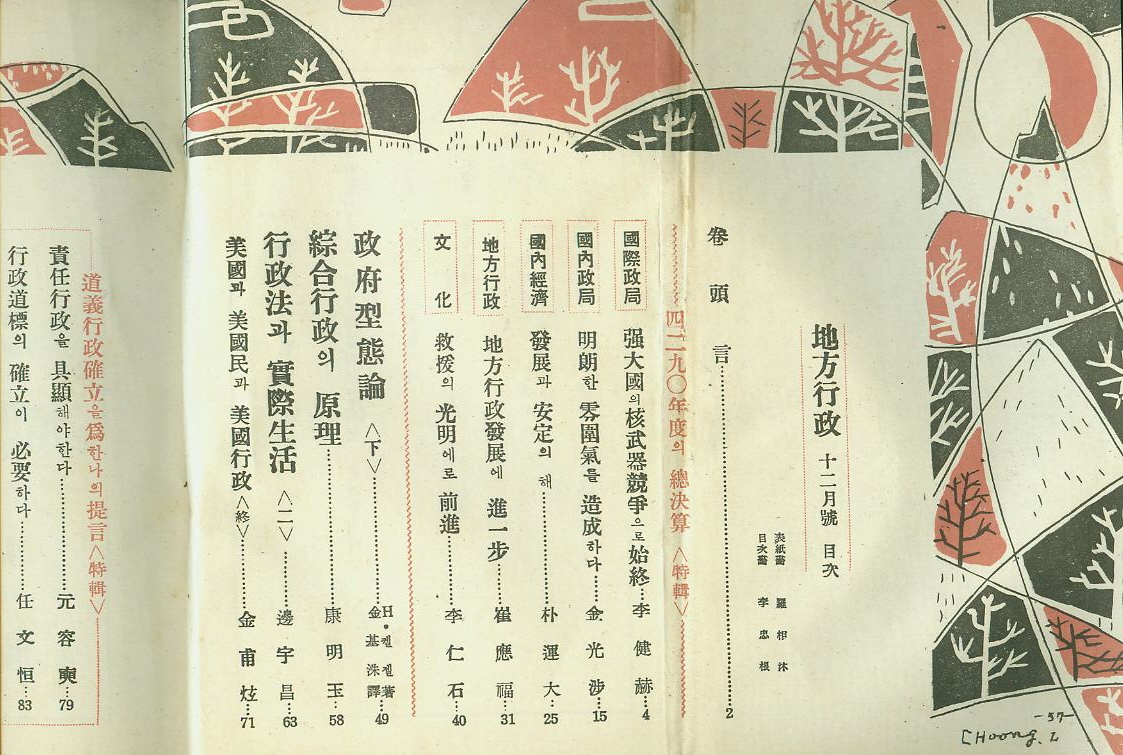 地方行政 十二月號 目次
表紙畵 羅相沐
目次畵 李忠根
卷頭言 2
四二九〇年度의 總決算 <特輯>
國際政局 强大國의 核武器競爭으로 始終 李健赫 4
國內政局 明朗한 雰圍氣를 造成하다 金光涉 15
國內經濟 發展과 安定의 해 朴運大 25
地方行政 地方行政發展에 進一步 崔應福 31
文化 救援의 光明에로 前進 李仁石 40
政府型態論 <下> H•켈젤著 金基洙譯 49
綜合行政의 原理 康明玉 58
行政法과 實際生活 <二> 邊宇昌 63
美國과 美國民과 美國行政 <終> 金甫炫 71
道義行政確立을 爲한 나의 提言 <特輯>
責任行政을 具顯해야한다 元容奭 79
行政道標의 確立이 必要하다 任文恒 83
-57-
CHoong. L